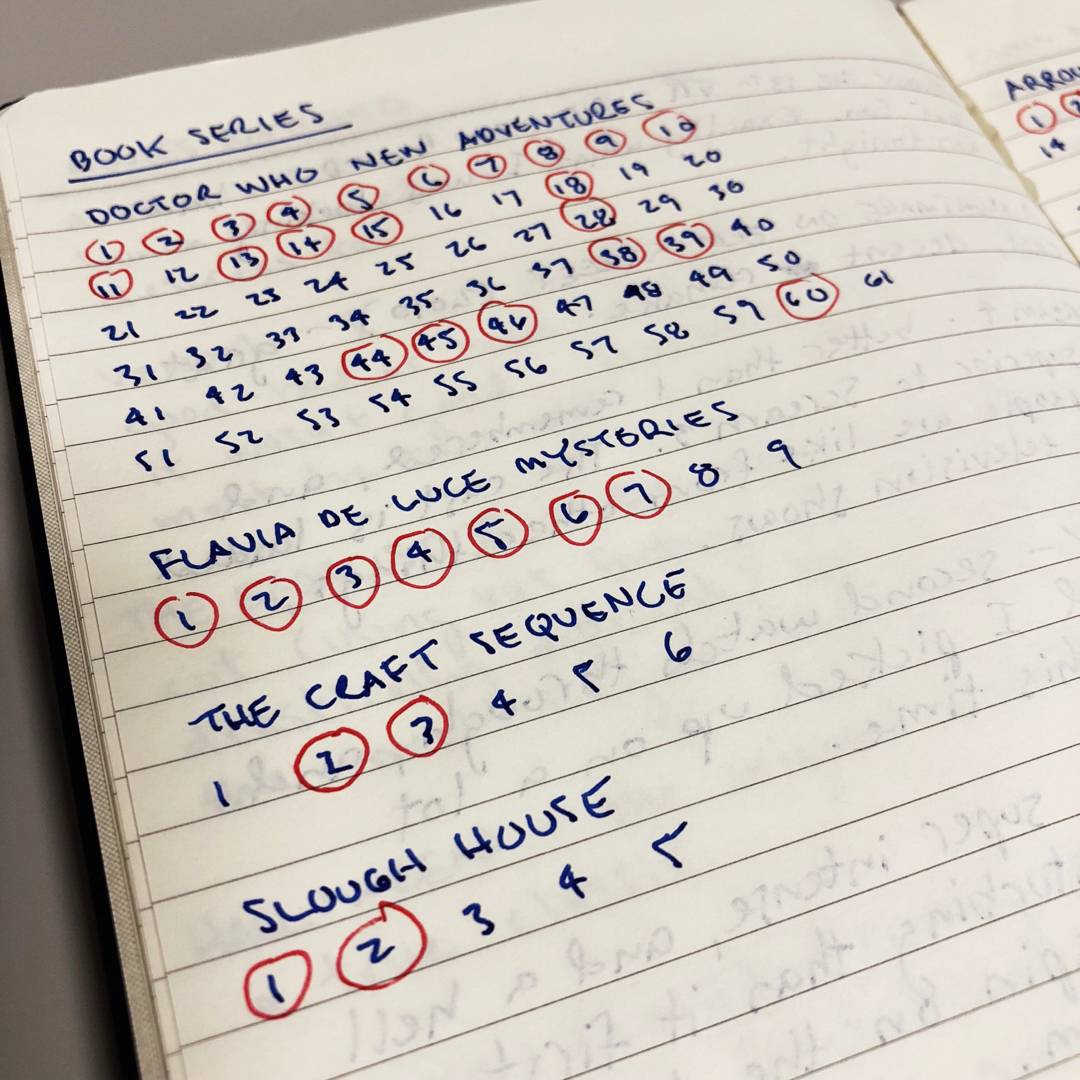 BOOK SERIES
DOCTOR WHO NEW ADVENTURES
1 2 3 4 5 6 7 8 9 10
11 12 13 14 15 16 17 18 19 20
21 22 23 24 25 26 27 28 29 30
31 32 33 34 35 36 37 38 39 40
41 42 43 44 45 46 47 48 49 50
51 52 53 54 55 56 57 58 59 60 61
FLAVIA DE LUCE MYSTERIES
1 2 3 4 5 6 7 8 9
THE CRAFT SEQUENCE
1 2 3 4 5 6
SLOUGH HOUSE
1 2 3 4 5
1 2
14